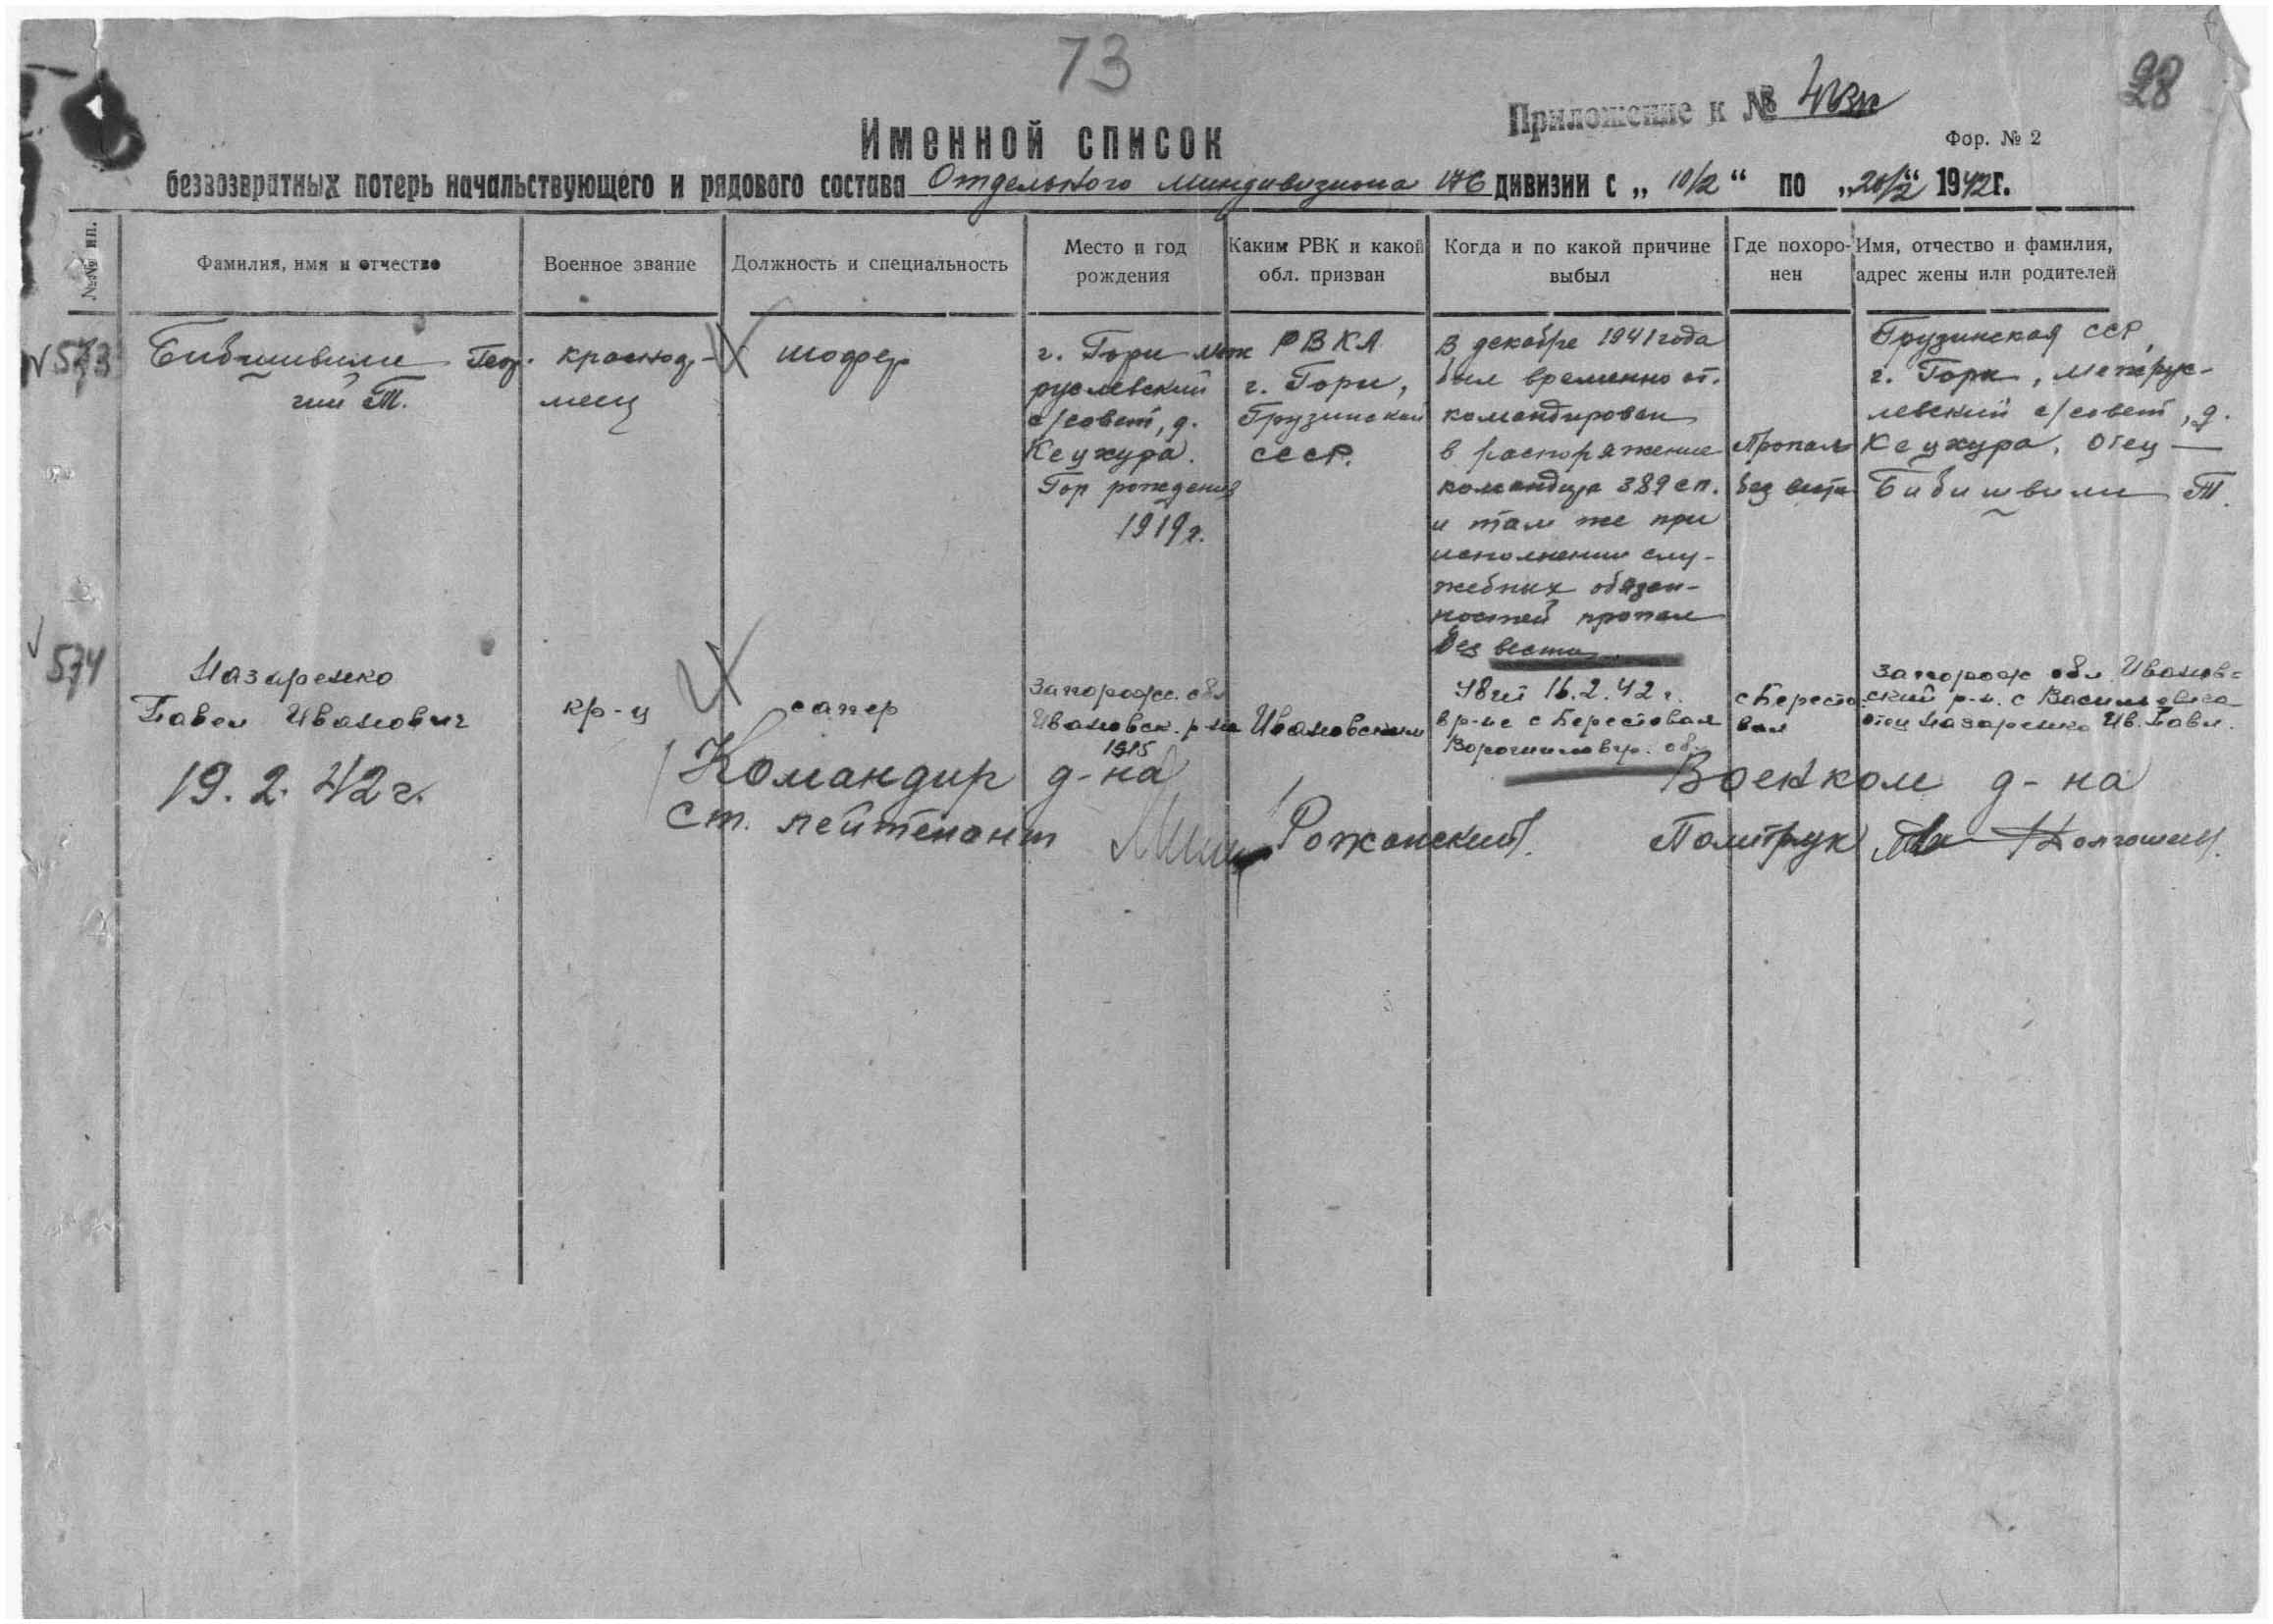 73
28
Приложение к №
Именной список
Фор. № 2
безвозвратных потерь начальствующего и рядового состава Отдельного миндивизиона 176 дивизии с „ 10/2 “ по „ 20/2 “ 1942 г.
№№ пп.
Фамилия, имя и отчество
Военное звание
Должность и специальность
Место и год
рождения
Каким РВК и какой
обл. призван
Когда и по какой причине
выбыл
Где похоро-
нен
Имя, отчество и фамилия,
адрес жены или родителей
573
Бибишвили Геор-
гий Т.
красноар-
меец
шофер
г. Гори Меж
руслевский
с/совет, д.
Кецхура.
Гор рождения
1919 г.
РВКА
г. Гори,
Грузинской
СССР.
В декабре 1941 года
был временно от-
командирован
в распоряжение
командира 389 сп.
и там же при
исполнении слу-
жебных обязан-
ностей пропал
без вести
Пропал
без вести
Грузинская ССР,
г. Гори, Метрук-
левский с/совет, д.
Кецхура, отец —
Бибишвили Т.
574
Назаренко
Павел Иванович
кр-ц
сапер
Запорож. обл
Ивановск. р-на
1915
Ивановским
Убит 16.2.42 г.
в р-не с Берестовая
Ворошиловгр. обл
с Бересто
вая
Запорож обл Иванов-
ский р-н. с Васильевка
отец Назаренко Ив. Павл.
19.2.42 г.
Командир д-на
Ст. лейтенант Рожанский
Военком д-на
Политрук